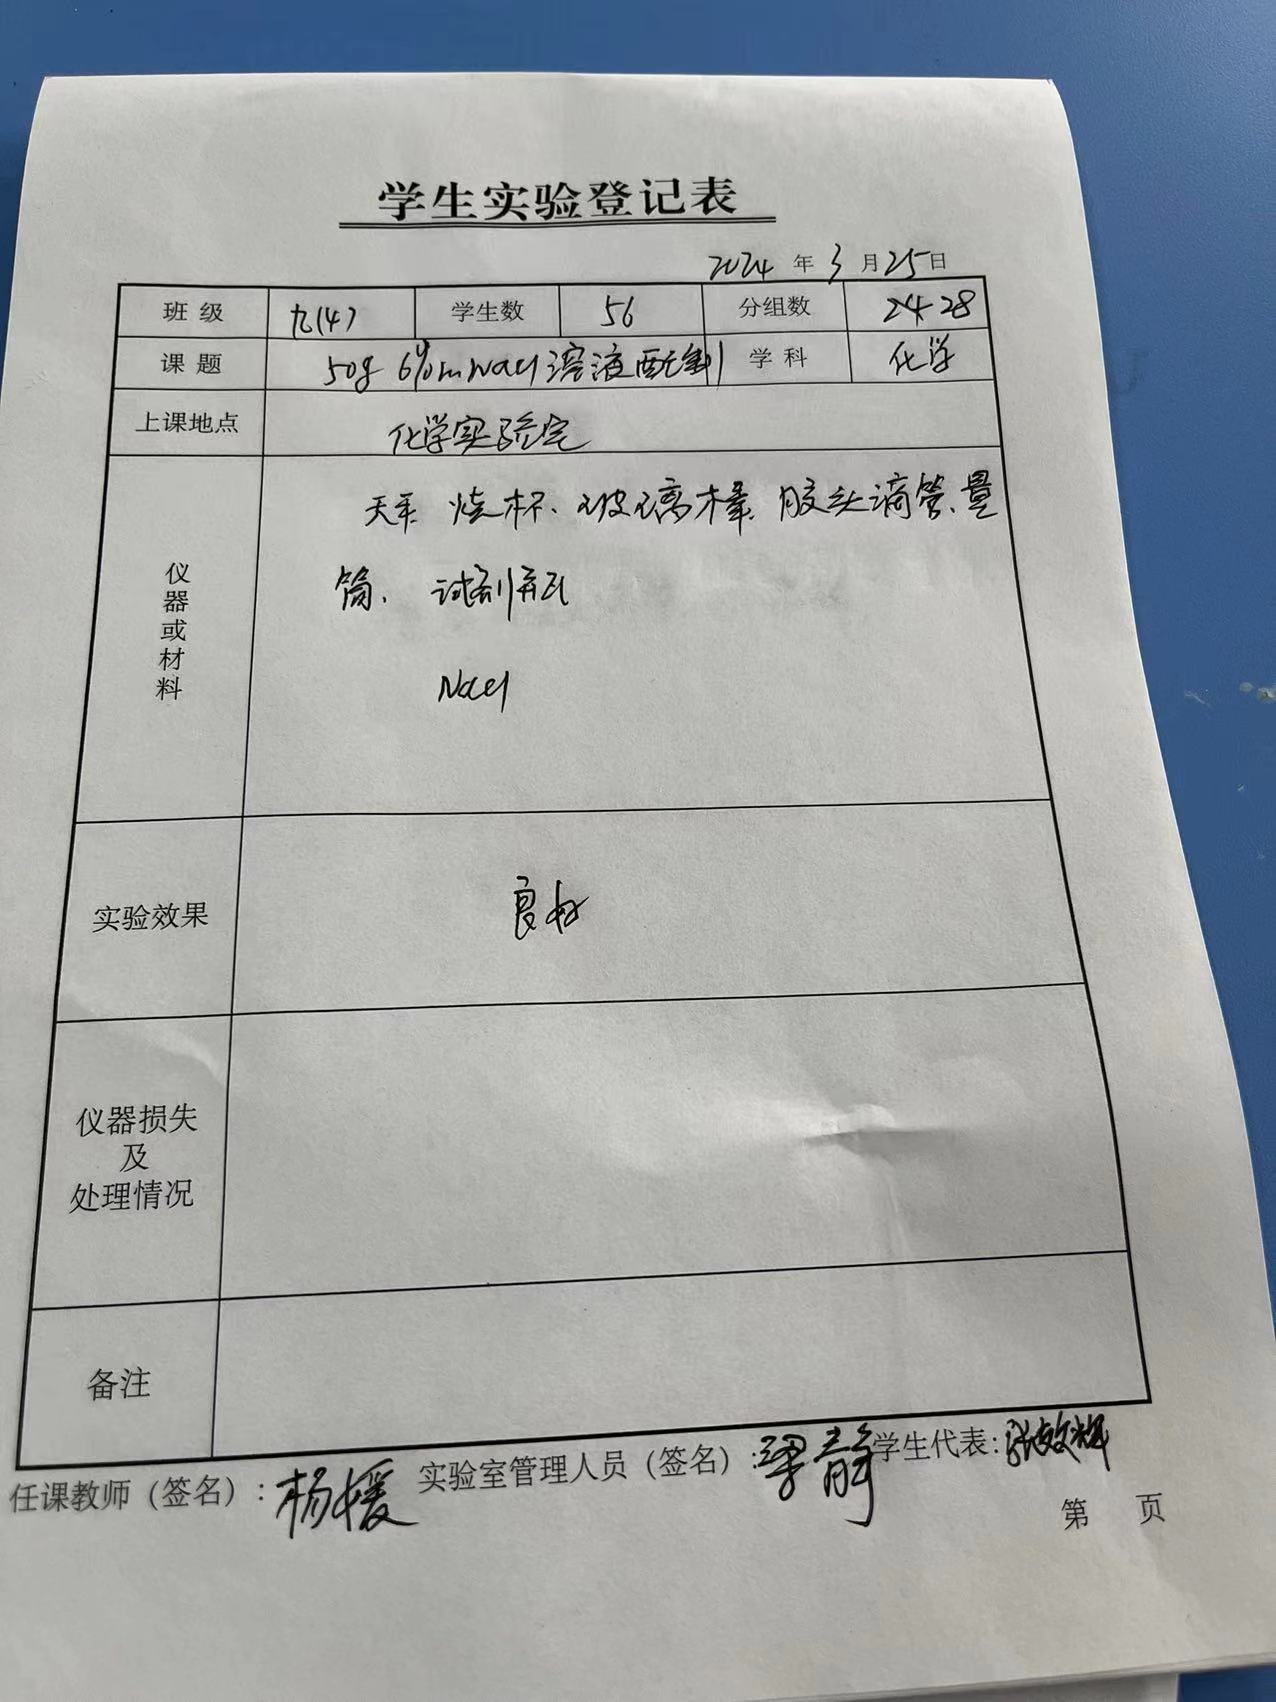 学生实验登记表
2024 年 3 月 25 日
班级 九(4) 学生数 56 分组数 24-28
课题 50g 6%的NaCl溶液配制 学科 化学
上课地点 化学实验室
仪器或材料 天平、烧杯、玻璃棒、胶头滴管、量
筒、试剂瓶
NaCl
实验效果 良好
仪器损失
及
处理情况
备注
任课教师(签名): 杨媛 实验室管理人员(签名): 梁静 学生代表: 张敏辉
第 页